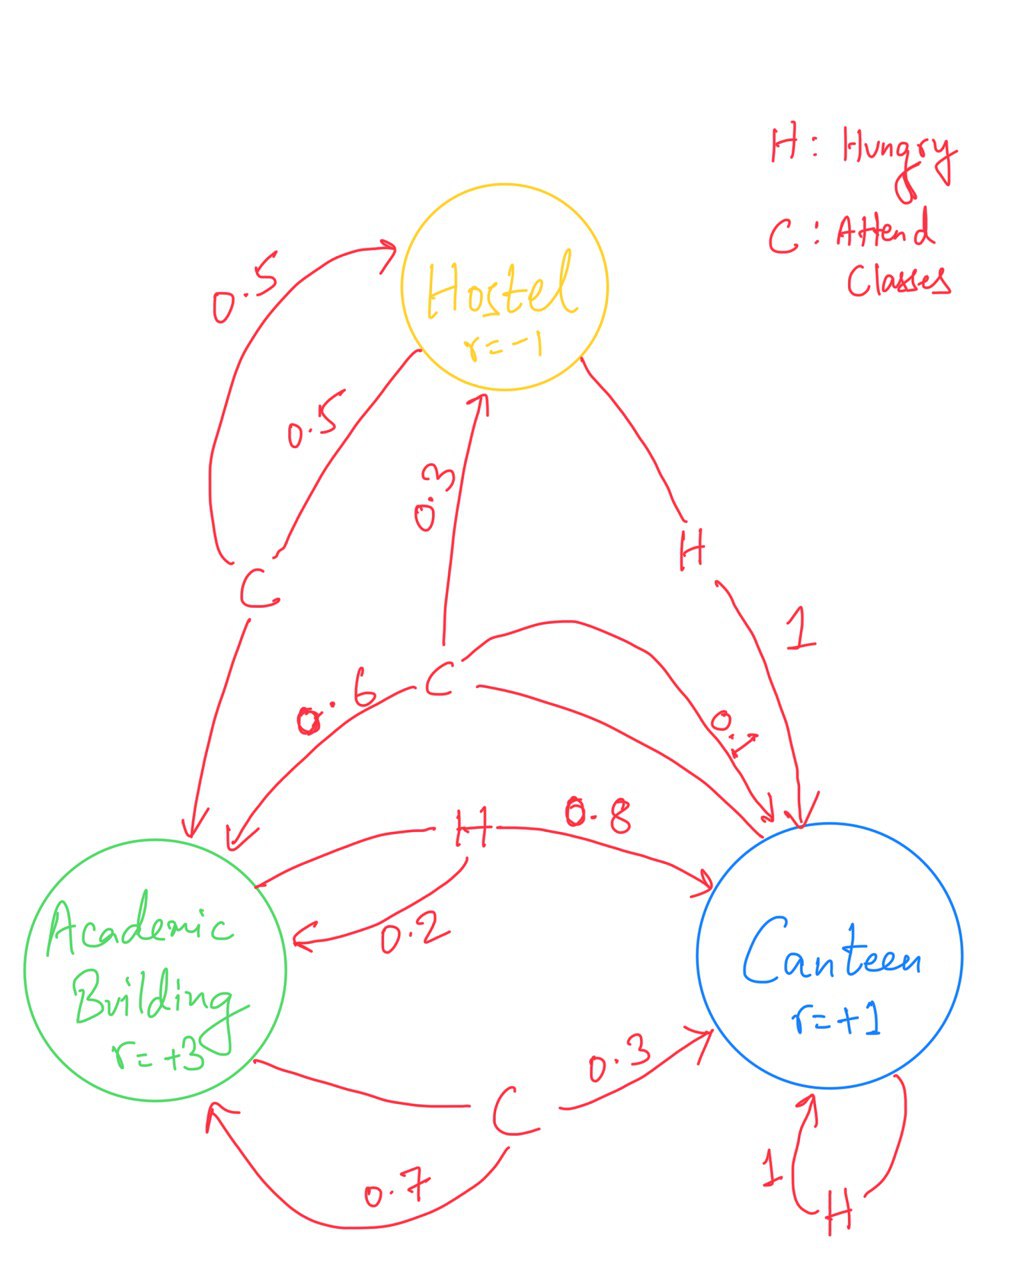 H : Hungry
C : Attend
Classes
0.5
Hostel
r = -1
0.5
0.3
H
C
1
C
0.6
0.1
H
0.8
0.2
Academic
Building
r = +3
Canteen
r = +1
0.3
C
0.7
1
H